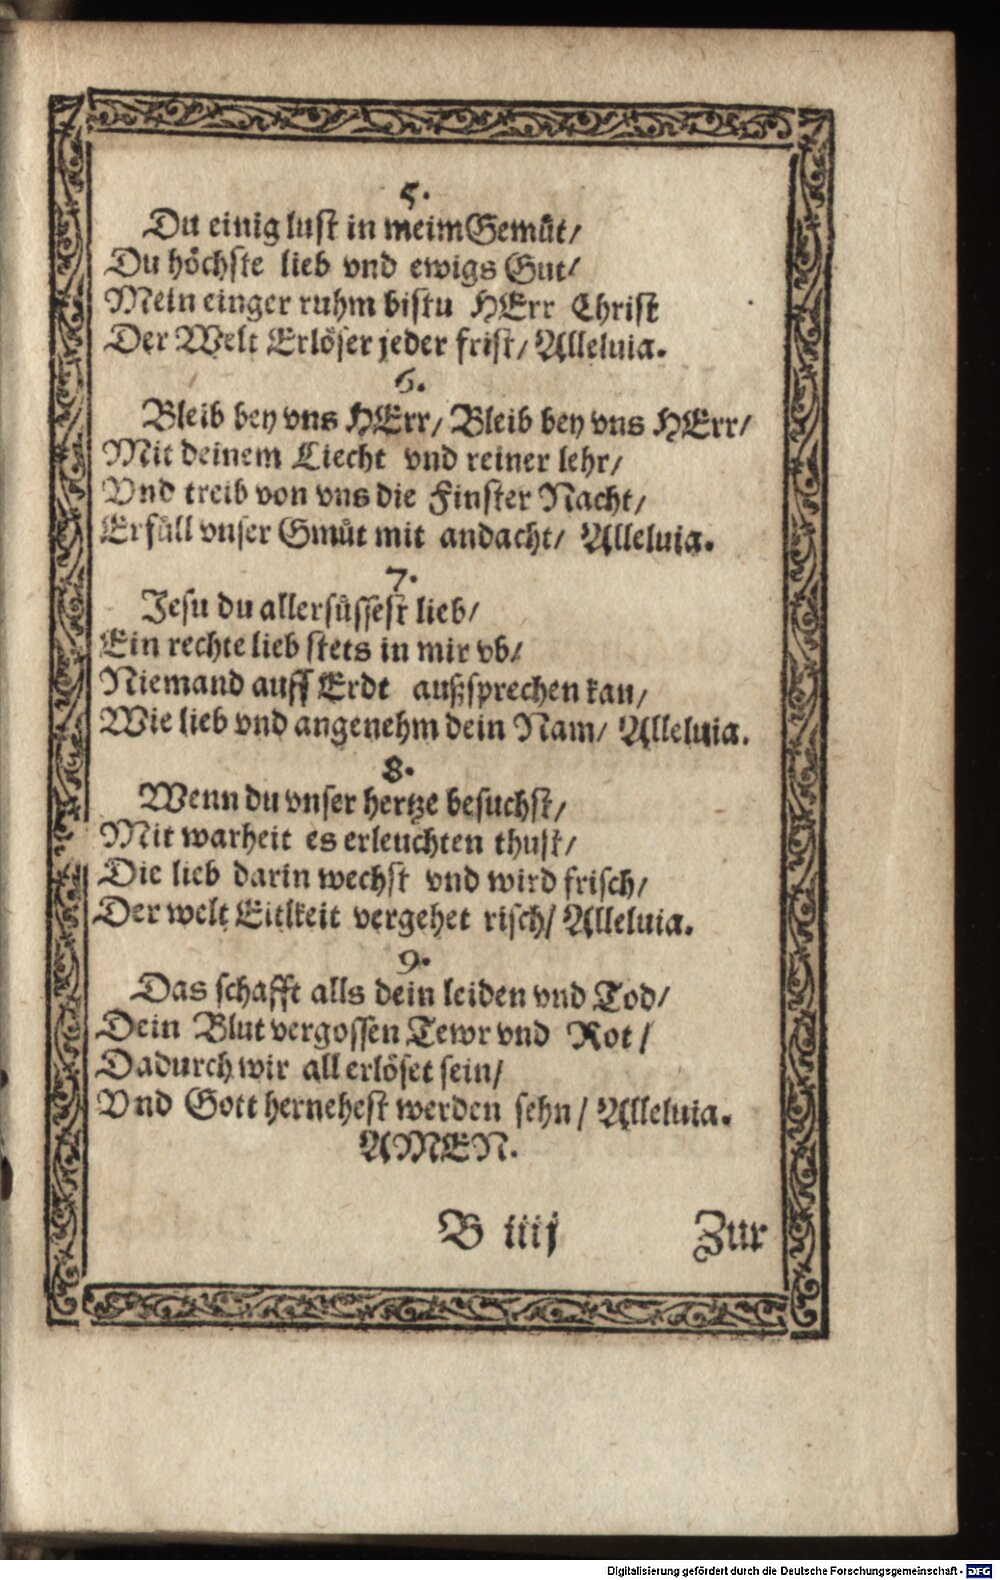 5.
Du einig lust in meim Gemüt/
Du höchste lieb vnd ewigs Gut/
Mein einger ruhm bistu HErr Christ
Der Welt Erlöser jeder frist/ Alleluia.
6.
Bleib bey vns HErr/ Bleib bey vns HErr/
Mit deinem Liecht vnd reiner lehr/
Vnd treib von vns die Finster Nacht/
Erfüll vnser Gmüt mit andacht/ Alleluia.
7.
Jesu du allersüssest lieb/
Ein rechte lieb stets in mir vb/
Niemand auff Erdt außsprechen kan/
Wie lieb vnd angenehm dein Nam/ Alleluia.
8.
Wenn du vnser hertze besuchst/
Mit warheit es erleuchten thust/
Die lieb darin wechst vnd wird frisch/
Der welt Eitlkeit vergehet risch/ Alleluia.
9.
Das schafft alls dein leiden vnd Tod/
Dein Blut vergossen Tewr vnd Rot/
Dadurch wir all erlöset sein/
Vnd Gott hernehest werden sehn/ Alleluia.
AMEN.
B iiij Zur
Digitalisierung gefördert durch die Deutsche Forschungsgemeinschaft - DFG